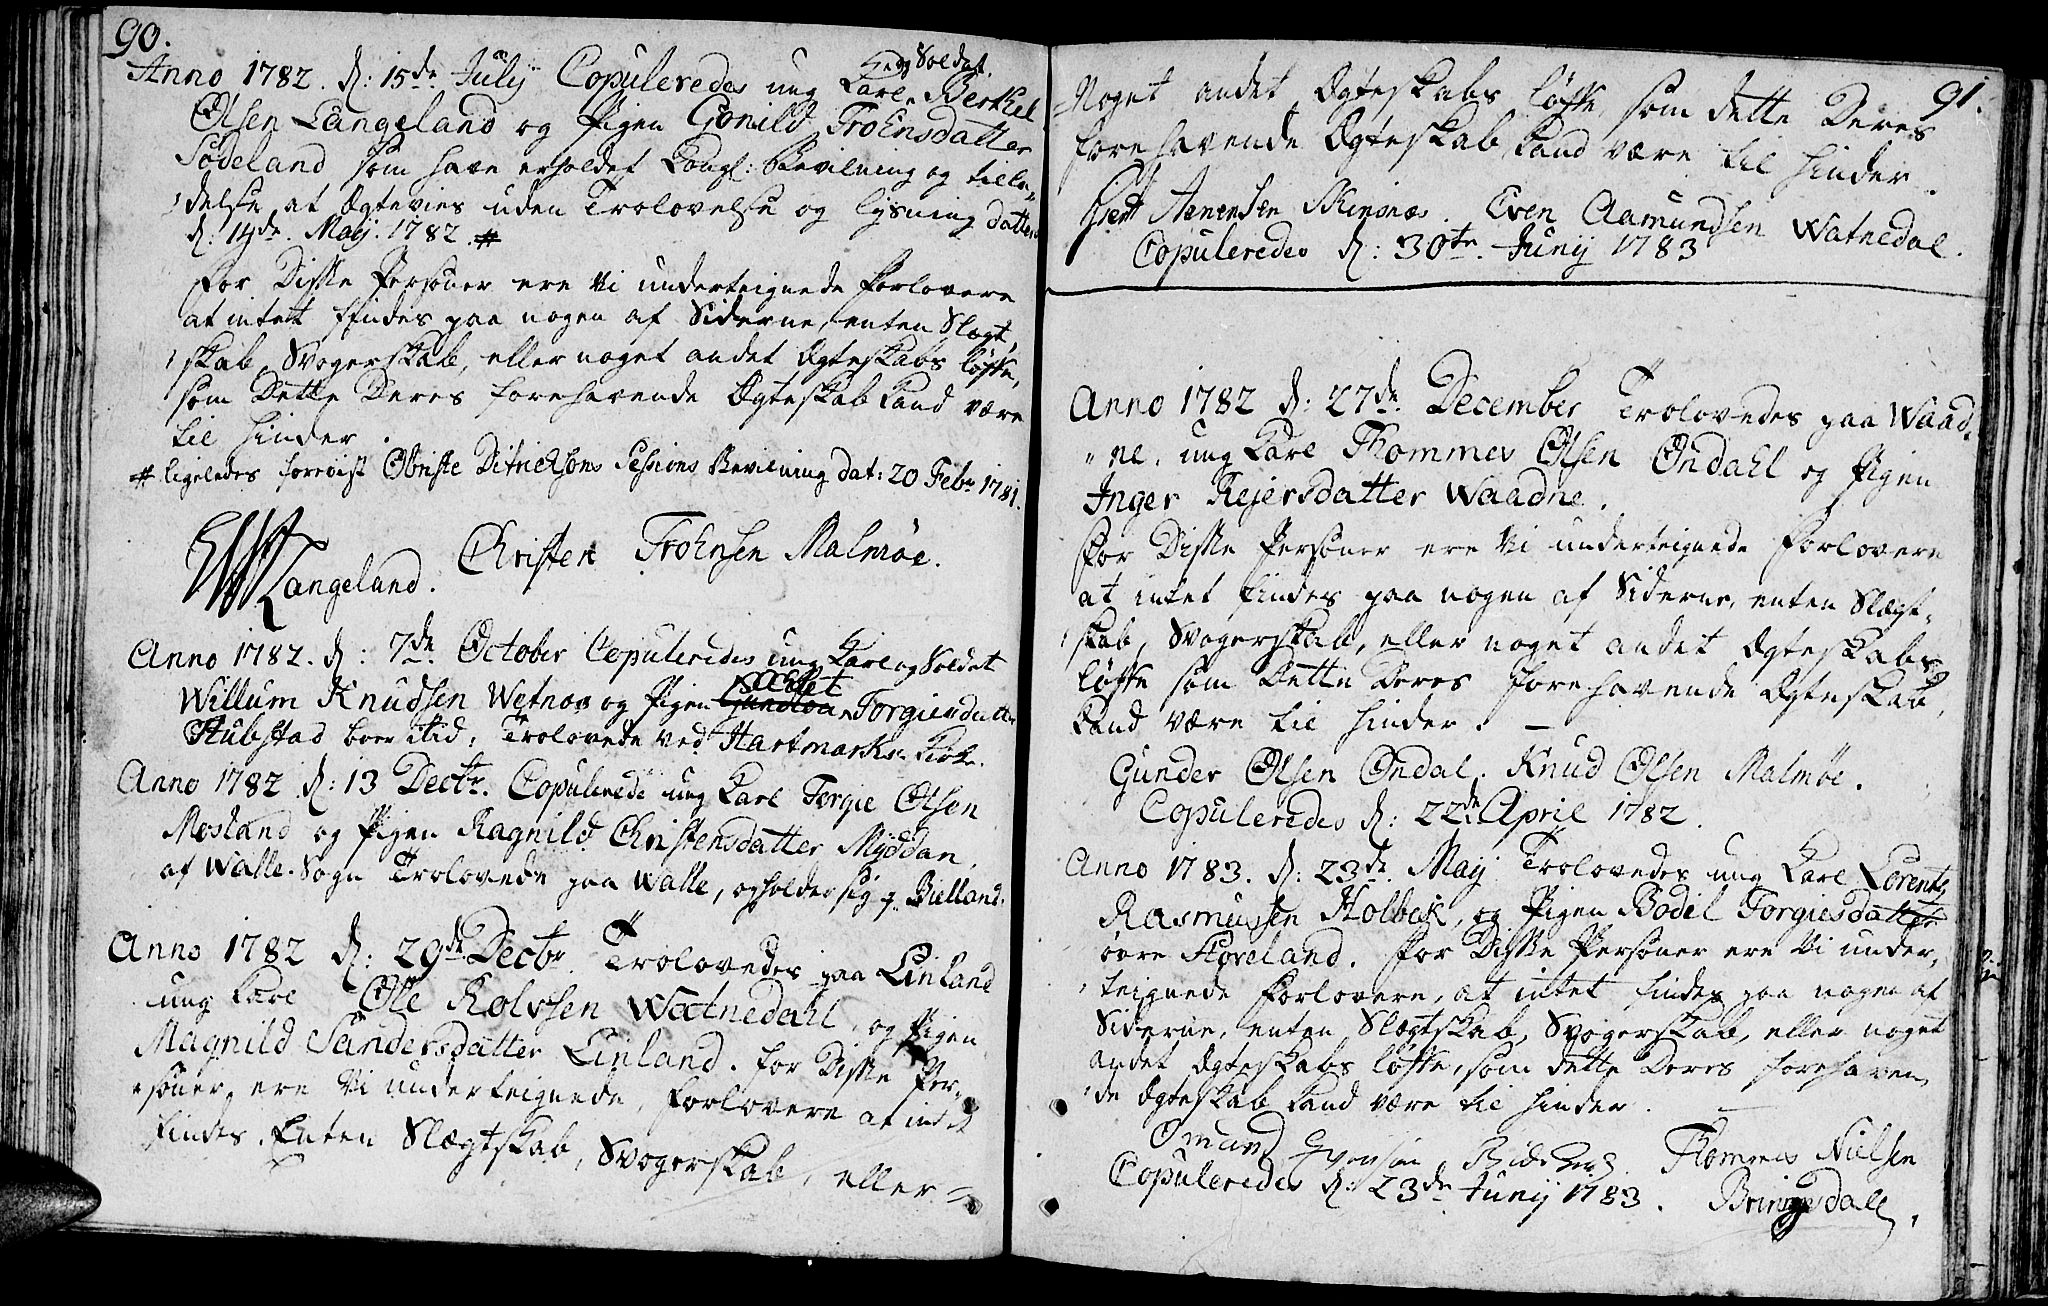 90.
Anno 1782. d: 15de July Copuleredes ung Karl og Soldat Berthel
Olsen Langeland og Pigen Gonild Troensdatter
Sødeland som have erholdet Kongl: Bevilning og tilla„
„delse at Ægtevies uden Trolovelse og lysning datteret
d: 14de. Maij. 1782. #
For Disse Personer ere Vi underteignede Forlovere
at intet findes paa nogen af Siderne, enten Slægt„
„skab, Svogerskab, eller noget andet Ægteskabs løfte,
som Dette Deres forehavende Ægteskab kand være
til hinder.
# ligeledes forrviist Obriste Ditrichsons Sessions Bevilning dat: 20 Febr 1781.
Langeland. Christen Troensen Malmøe.
Anno 1782. d: 7de. October Copuleredes ung Karl og Soldat
Willum Knudsen Wetnos og Pigen Torgiersdatter
Stubstad boer ibid, Trolovede ved Hartmarks Kirke.
Anno 1782 d: 13 Dectr. Copulerede ung Karl Torgie Olsen
Mosland og Pigen Ragnild Christensdatter Myddan,
af Walle Sogn Trolovede paa Walle, opholder sig p. Bielland.
Anno 1782 d: 29de Dectr. Trolovedes paa Einland
ung Karl Olle Rolvsen Watnedahl, og Pigen
Magnild Sandersdatter Einland. for Disse Per„
„soner, ere Vi underteignede, Forlovere at intet
findes. Enten Slægtskab, Svogerskab, eller =
91.
=Noget andet Ægteskabs løfte, som dette Deres
forehavende Ægteskab, kand være til hinder.
Siert Aanensen Skinsnæs. Even Aamundsen Watnedal.
Copuleredes d: 30te. Junij 1783
Anno 1782 d: 27de. December Trolovedes paa Waad„
„ne, ung Karl Thommes Olsen Ondahl og Pigen
Inger Rejersdatter Waadne.
For Disse Personer ere Vi underteignede Forlovere
at intet findes paa nogen af Siderne, enten Slægt„
„skab, Svogerskab, eller noget andet Ægteskabs
løfte som Dette Deres forehavende Ægteskab,
kand være til hinder. —
Gunder Olsen Ondal. Knud Olsen Malmøe.
Copuleredes d: 22de April 1782.
Anno 1783. d: 23de. Maij Trolovedes ung Karl Lorentz
Rasmussen Holbek, og Pigen Bodil Torgiesdatter
øvre Floreland. For Disse Personer ere Vi under„
„teignede Forlovere, at intet findes paa nogen af
Siderne, enten Slægtskab, Svogerskab, eller noget
andet Ægteskabs løfte, som dette Deres forehaven„
„de Ægteskab kand være til hinder. —
Omund Evensen Thommes Nielsen
Copuleredes d: 23de Junij 1783. Bringsdall,